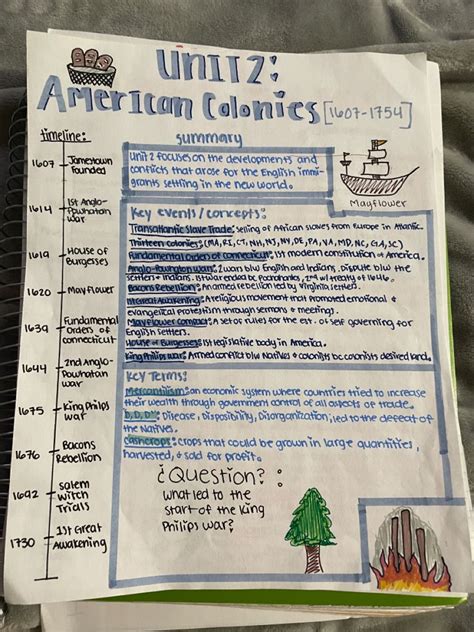 Unit 2:
American Colonies [1607-1754]
timeline:
1607 Jamestown
founded
1614 1st Anglo-
Powhatan
war
1619 House of
Burgesses
1620 Mayflower
1639 Fundamental
Orders of
Connecticut
1644 2nd Anglo-
Powhatan
war
1675 King Philips
War
1676 Bacons
Rebellion
1692 Salem
Witch
Trials
1730 1st Great
Awakening
summary
Unit 2 focuses on the developments and
conflicts that arose for the English immi-
grants settling in the new world.
Mayflower
Key events/concepts:
Transatlantic Slave Trade: selling of African slaves from Europe in Atlantic.
Thirteen Colonies: (MA, RI, CT, NH, NJ, NY, DE, PA, VA, MD, NC, GA, SC)
Fundamental Orders of Connecticut: 1st modern constitution of America.
Anglo-Powhatan wars: 2 wars b/w English and Indians, dispute b/w the
settlers + Indians. 1st war ended bc Pocahontas, 2nd w/ treaty of 1646.
Bacons Rebellion: armed rebellion led by Virginia settlers.
1st Great Awakening: A religious movement that promoted emotional &
evangelical protestism through sermons & meetings.
Mayflower Compact: A set of rules for the est. of self governing for
English settlers.
House of Burgesses: 1st legislative body in America.
King Philips War: Armed conflict b/w Natives & colonists bc colonists desired land.
Key Terms:
Mercantilism: an economic system where countries tried to increase
their wealth through government control of all aspects of trade.
Disease, Disposibility, Disorganization; led to the defeat of
the Natives.
cashcrops: crops that could be grown in large quantities,
harvested, & sold for profit.
¿Question?:
what led to the
start of the King
Philips war?